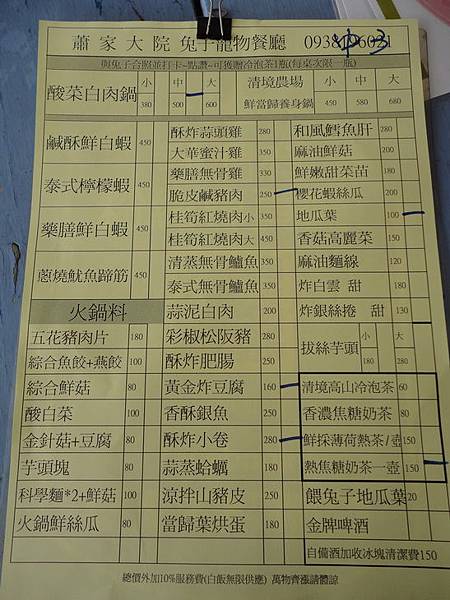 蕭家大院 兔子寵物餐廳
與兔子合照並打卡~點讚~可獲贈冷泡茶1瓶(每桌次限一瓶)
酸菜白肉鍋 小 380 中 500 大 600
清境農場 鮮當歸養身鍋 小 450 中 580 大 680
鹹酥鮮白蝦 450
泰式檸檬蝦 450
藥膳鮮白蝦 450
蔥燒魷魚蹄筋 450
火鍋料
五花豬肉片 180
綜合魚餃+燕餃 100
綜合鮮菇 80
酸白菜 100
金針菇+豆腐 80
芋頭塊 80
科學麵*2+鮮菇 100
火鍋鮮絲瓜 80
酥炸蒜頭雞 280
大華蜜汁雞 350
藥膳無骨雞 330
脆皮鹹豬肉 250
桂筍紅燒肉小 350
桂筍紅燒肉大 450
清蒸無骨鱸魚 350
泰式無骨鱸魚 350
蒜泥白肉 200
彩椒松阪豬 280
酥炸肥腸 250
黃金炸豆腐 160
香酥銀魚 250
酥炸小卷 280
蒜蒸蛤蠣 180
涼拌山豬皮 250
當歸葉烘蛋 180
和風鱈魚肝 280
麻油鮮菇 200
鮮嫩甜菜苗 180
櫻花蝦絲瓜 200
地瓜葉 100
香菇高麗菜 150
麻油麵線 120
炸白雲 甜 180
炸銀絲捲 甜 130
拔絲芋頭 小 180 大 280
清境高山冷泡茶 60
香濃焦糖奶茶 80
鮮採薄荷熱茶/壺 150
熱焦糖奶茶一壺 150
餵兔子地瓜葉 20
金牌啤酒
自備酒加收冰塊清潔費150
總價外加10%服務費(白飯無限供應) 萬物齊漲請體諒